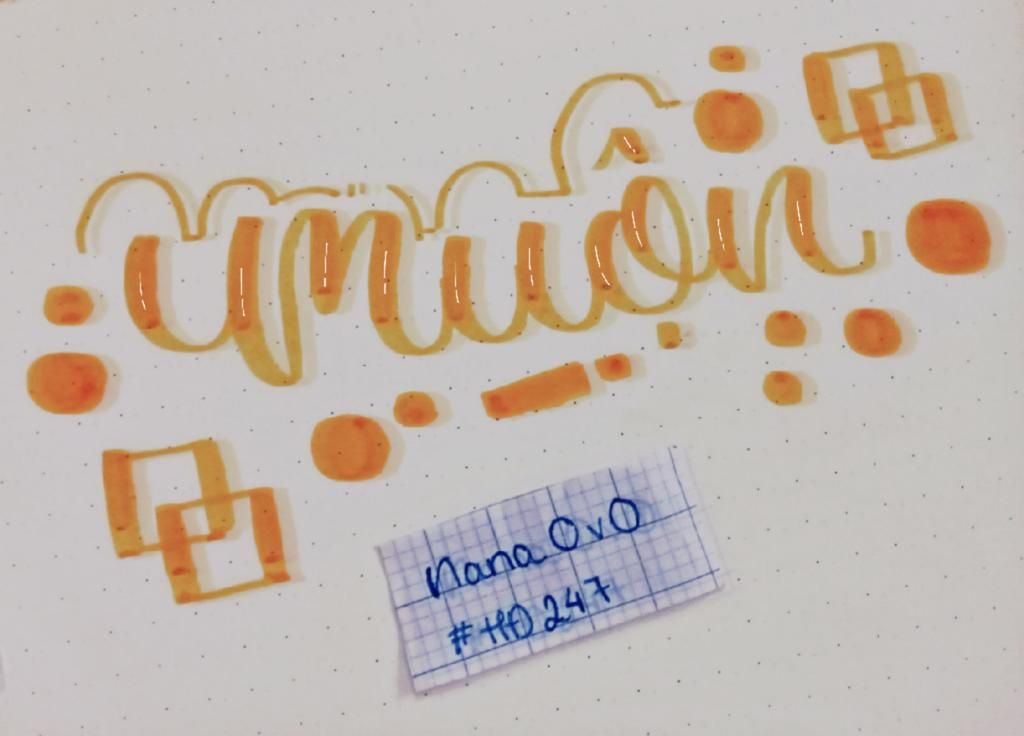 muôn
Nana OvO
#HD247